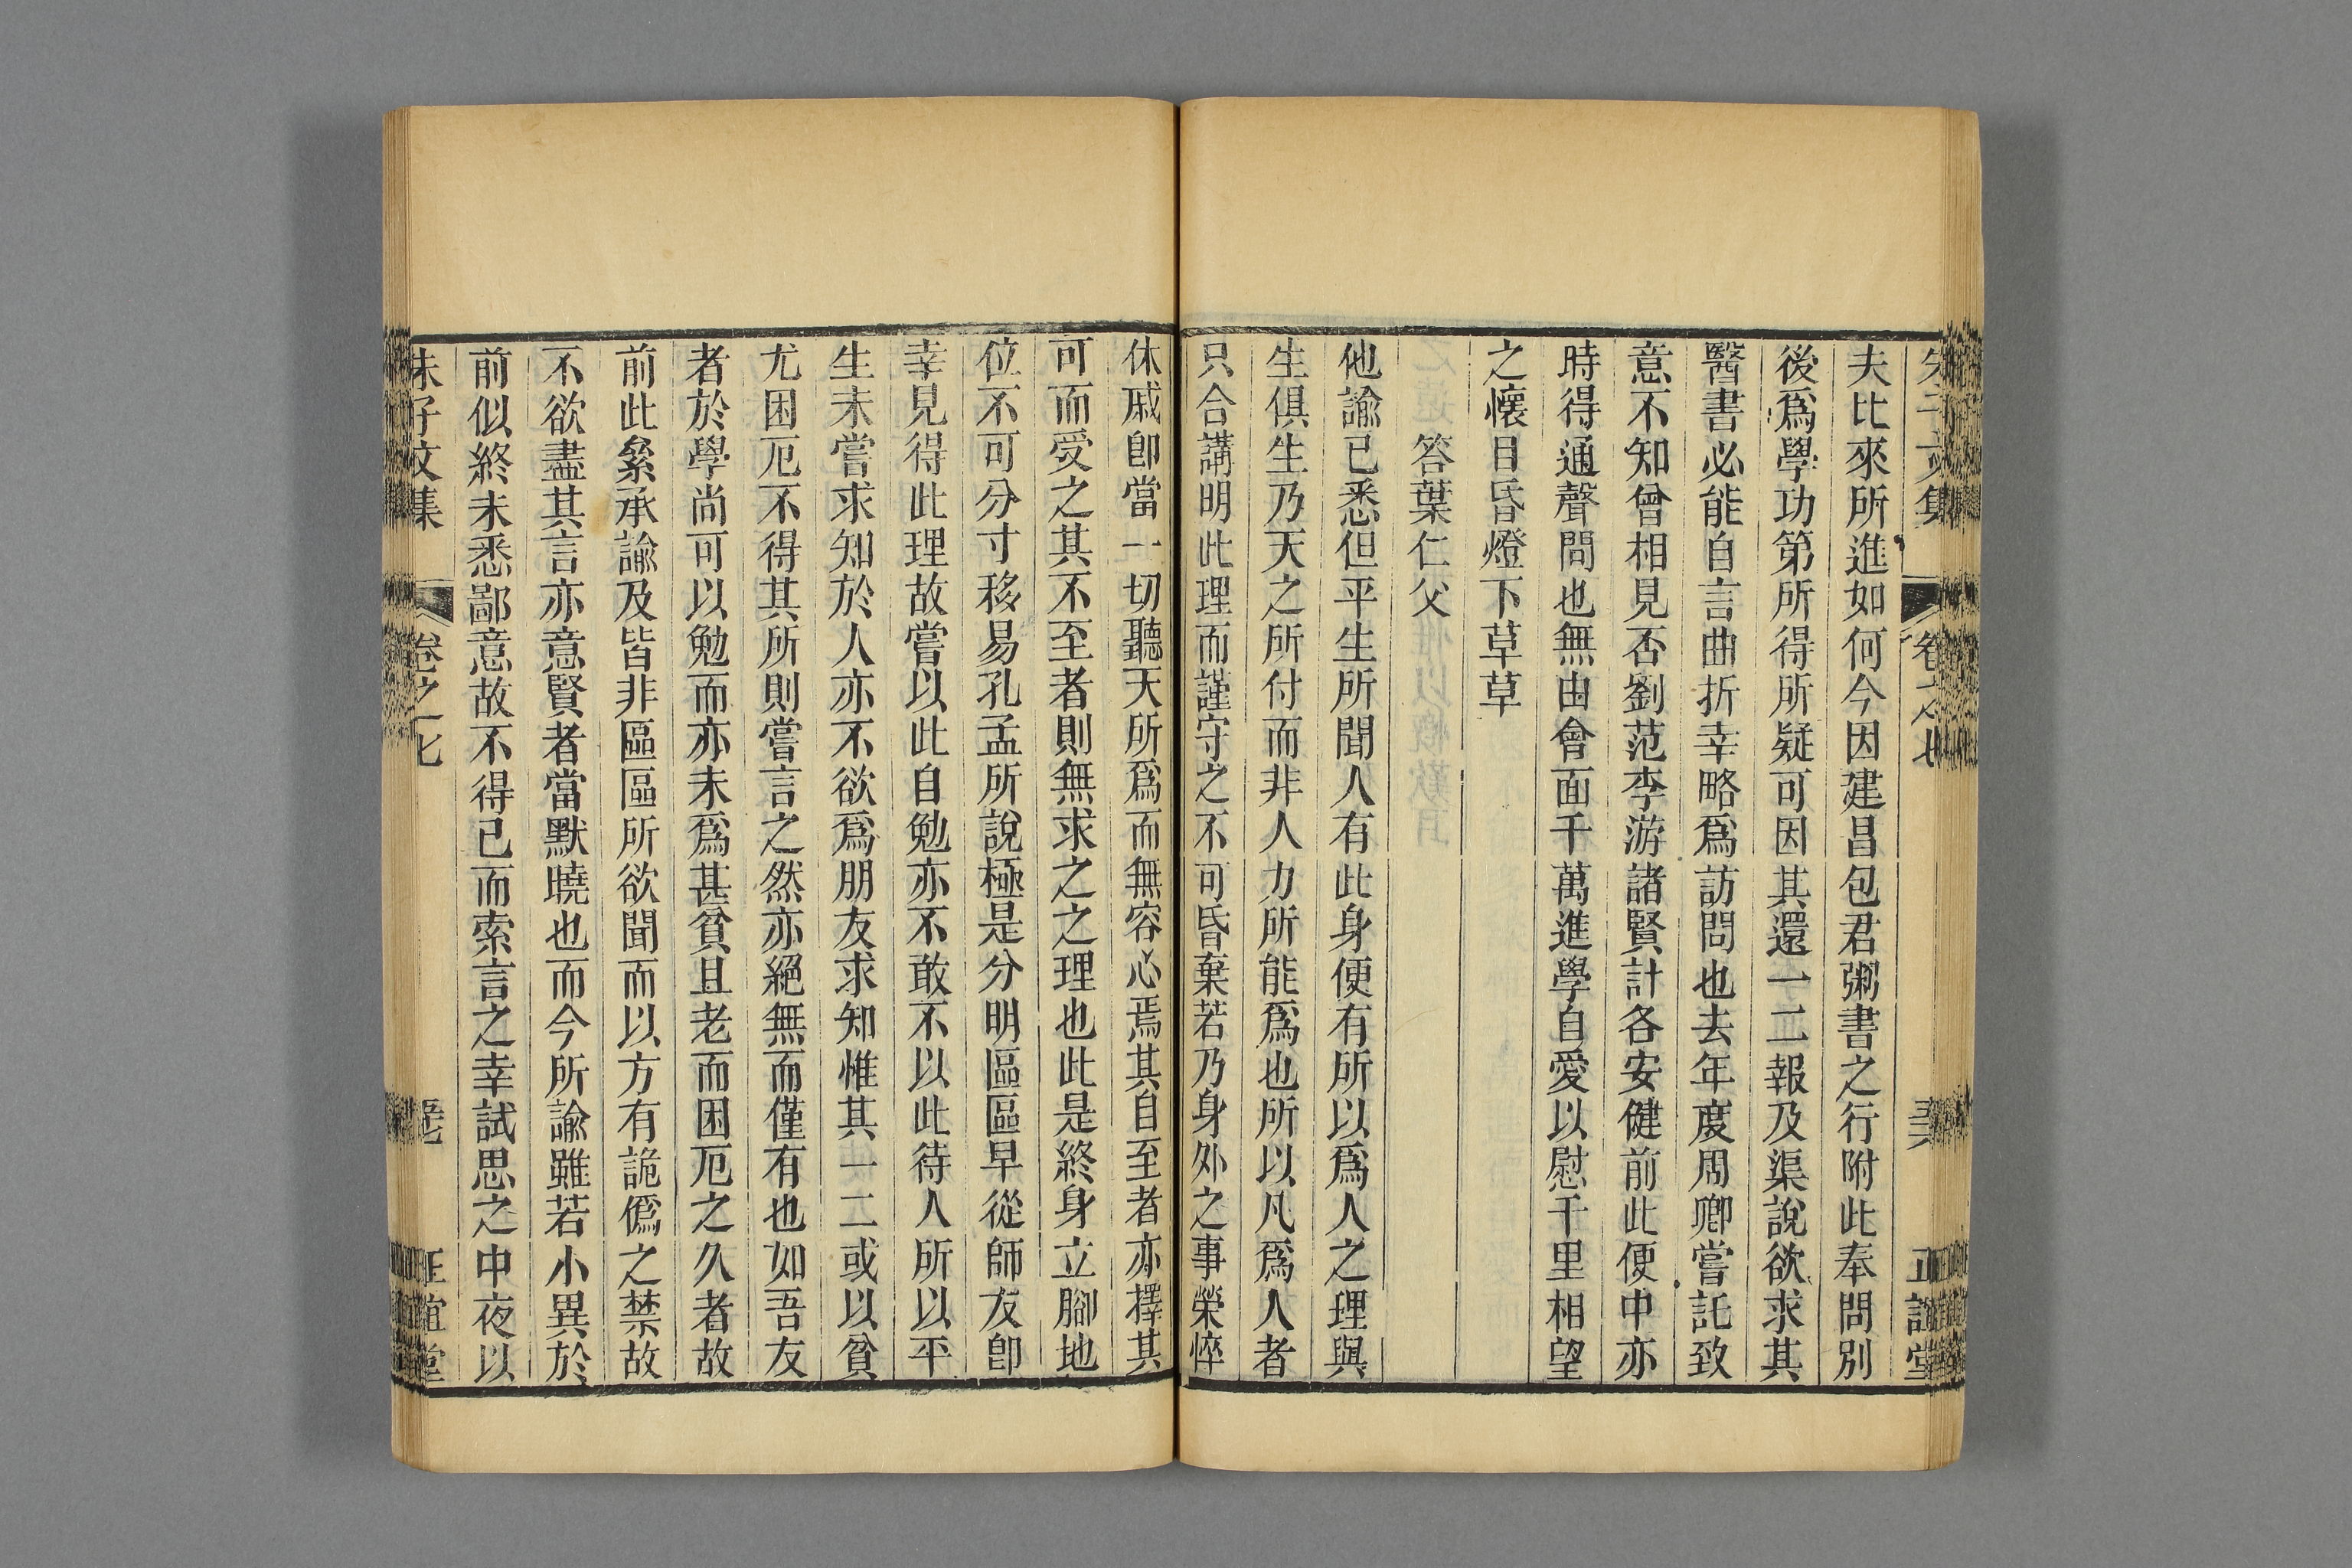 夫比來所進如何今因建昌包君粥書之行附此奉問別
後爲學功第所得所疑可因其還一二報及渠說欲求其
醫書必能自言曲折幸略爲訪問也去年度周卿嘗託致
意不知曾相見否劉范李游諸賢計各安健前此便中亦
時得通聲問也無由會面千萬進學自愛以慰千里相望
之懷目昏燈下草草
答葉仁父
他諭已悉但平生所聞人有此身便有所以爲人之理與
生俱生乃天之所付而非人力所能爲也所以凡爲人者
只合講明此理而謹守之不可昏棄若乃身外之事榮悴
休戚卽當一切聽天所爲而無容心焉其自至者亦擇其
可而受之其不至者則無求之之理也此是終身立腳地
位不可分寸移易孔孟所說極是分明區區早從師友卽
幸見得此理故嘗以此自勉亦不敢不以此待人所以平
生未嘗求知於人亦不欲爲朋友求知惟其一二或以貧
尤困厄不得其所則嘗言之然亦絕無而僅有也如吾友
者於學尚可以勉而亦未爲甚貧且老而困厄之久者故
前此絫承諭及皆非區區所欲聞而以方有詭僞之禁故
不欲盡其言亦意賢者當默曉也而今所諭雖若小異於
前似終未悉鄙意故不得已而索言之幸試思之中夜以
朱子文集 卷之七 正誼堂